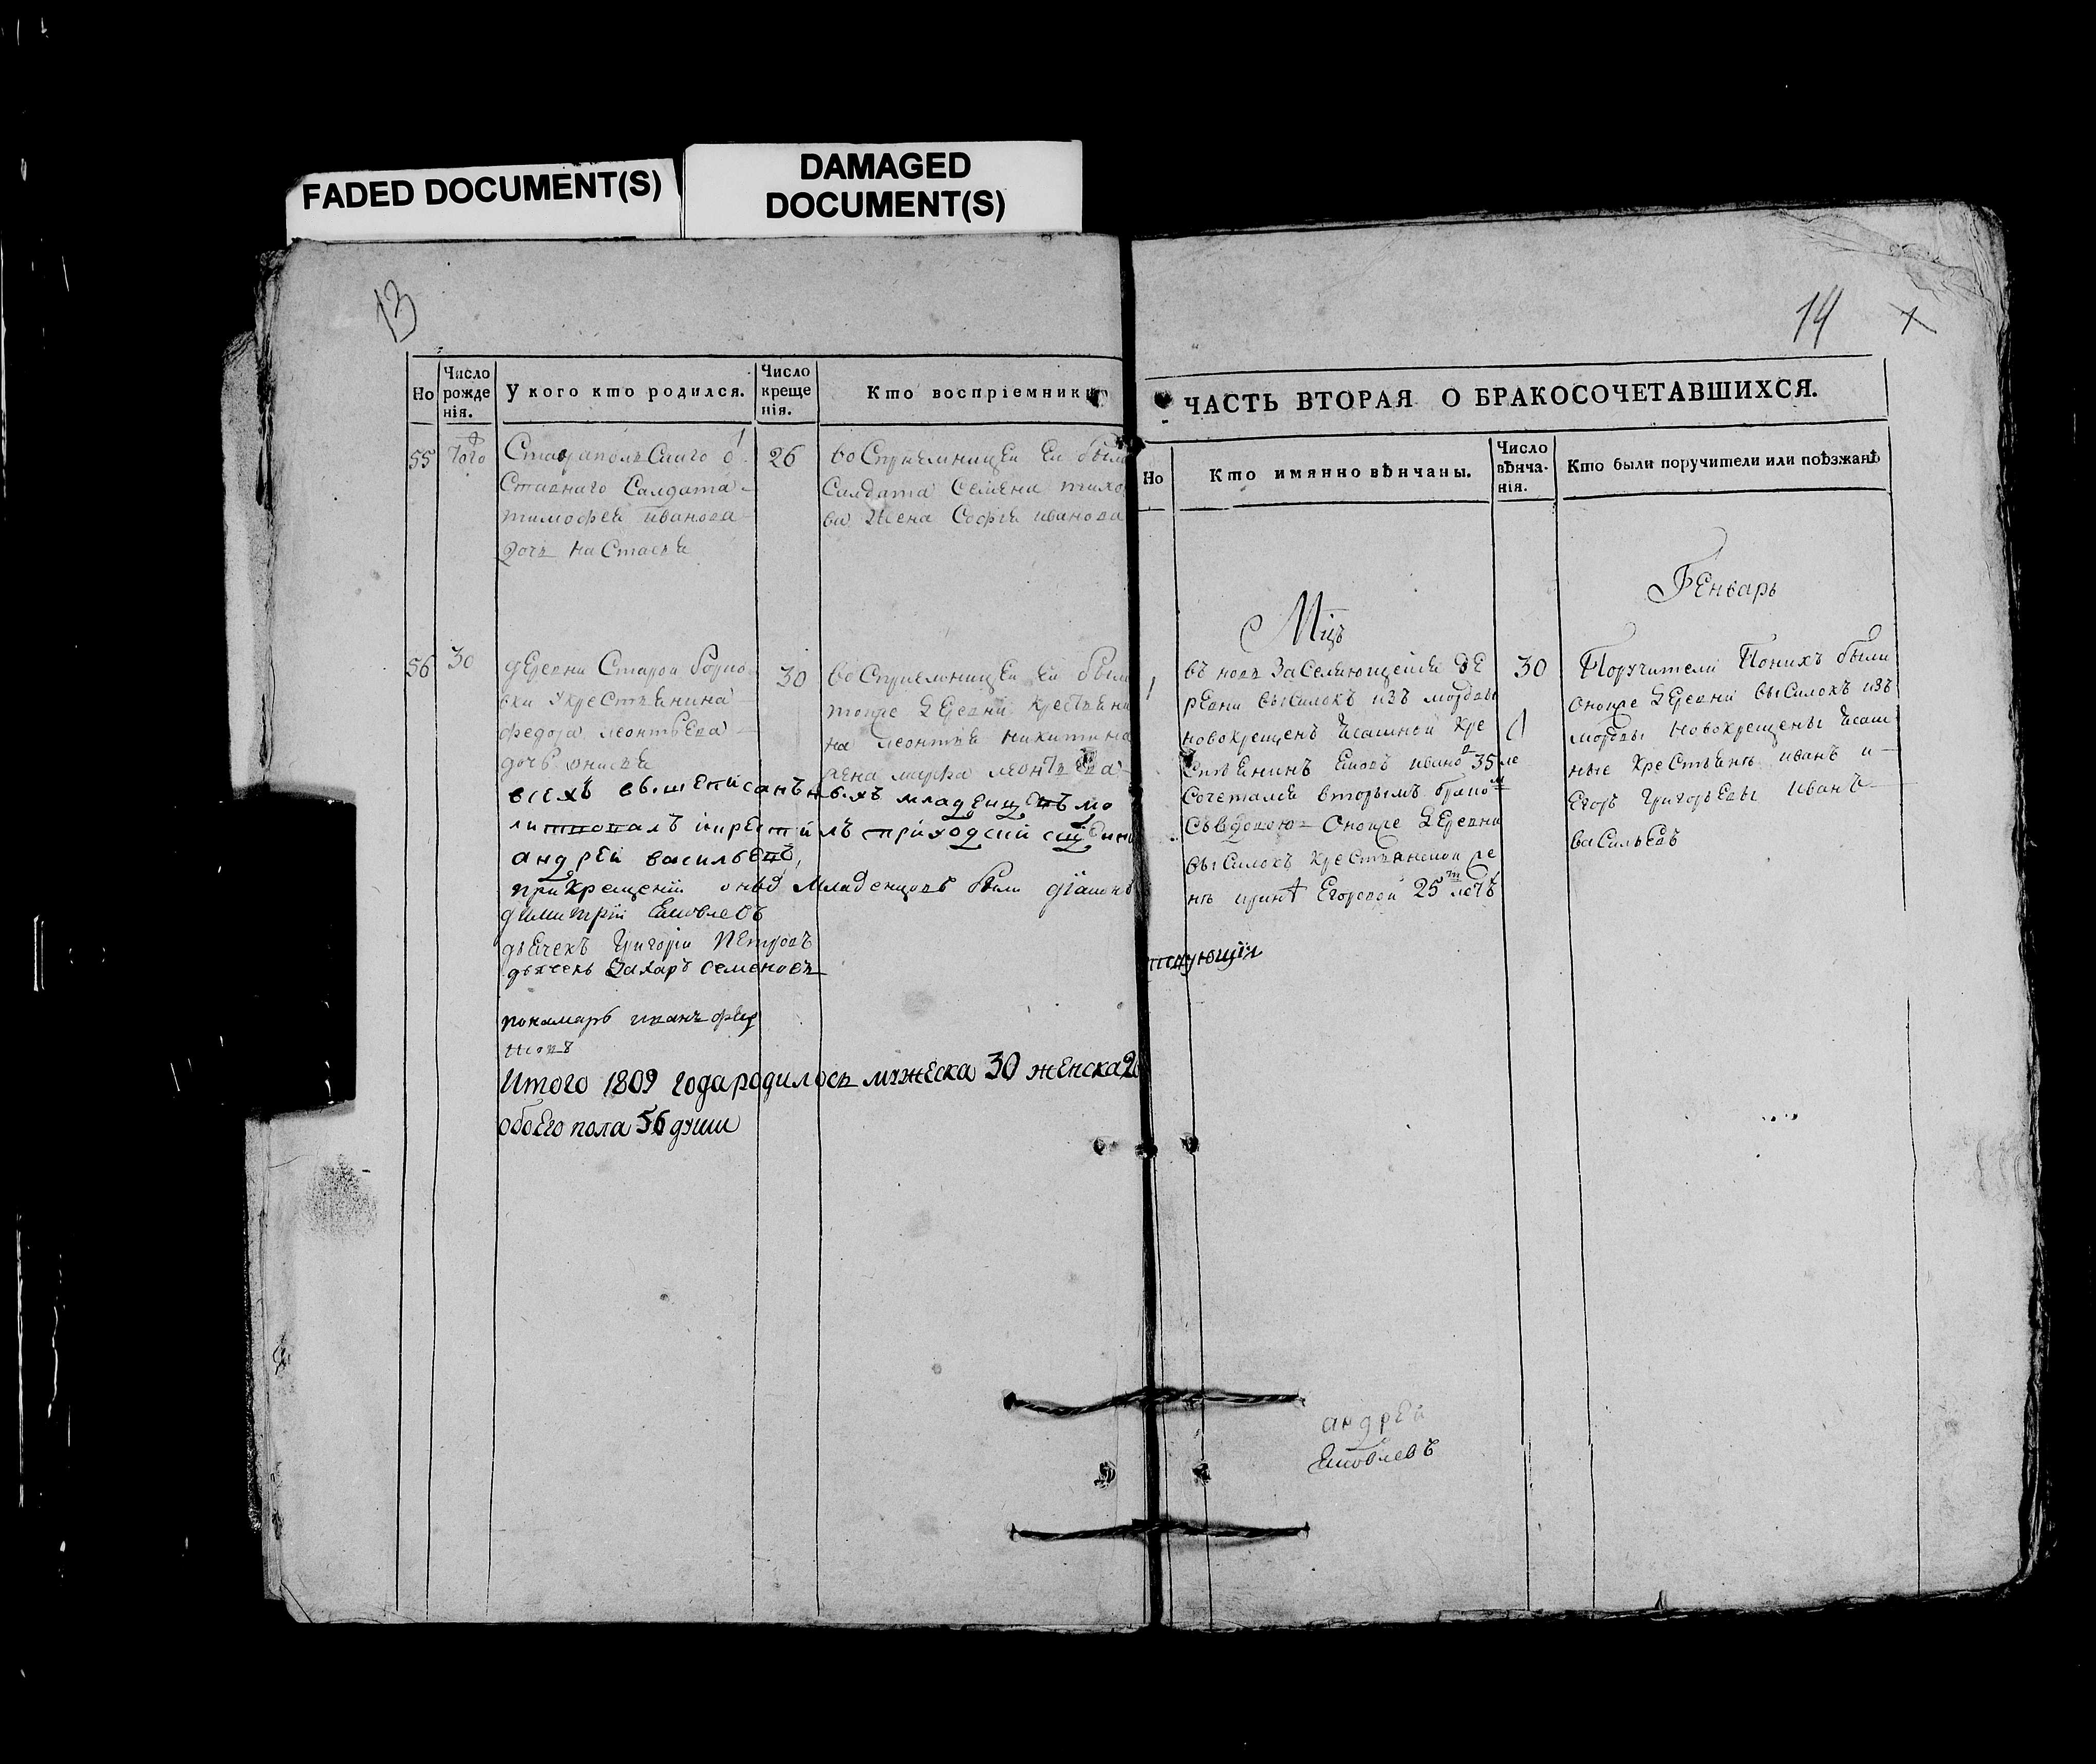 FADED DOCUMENT(S)
DAMAGED
DOCUMENT(S)
13
Но
Число рожде нія.
У кого кто родился.
Число креще нія.
Кто воспріемники
55
Того
26
Ставрапольскаго
Ставнаго Салдата
тимофея иванова
дочь настасья
восприемницеи еи была
Салдата Семена
ва жена Софья иванова
56
30
30
деревни Старои
вки у крестьянина
федора леонтьева
дочь
восприемницеи еи была
тоже деревни крестьяни
на леонтья никитина
жена марфа леонтьева
всехъ вышеписанныхъ младенцовъ мо
литвовалъ икрестилъ приходскій сщенно
андрей васильевъ,
при крещеніи младенцовъ были діаконъ
димитрій Яковлевъ
дьячекъ Григорій Петровъ
дьячекъ Захаръ семеновъ
пономарь иванъ
Итого 1809 года родилось мужеска 30 женска 26
обоего пола 56 души
14
ЧАСТЬ ВТОРАЯ О БРАКОСОЧЕТАВШИХСЯ.
Но
Кто имянно вѣнчаны.
Число вѣнча- нія.
Кто были поручители или поѣзжанѣ
Мцъ
Генварь
1
30
въ новь Заселяющейся де
ревни выселокъ изъ мордвы
новокрещенъ Ясашной кре
стьянинъ Яковъ 35 ле
Сочетался вторымъ бракомъ
Съвдовою Оноже деревни
выселокъ крестьянской
Егоровой 25 летъ
Поручители Поникъ были
оноже деревни выселокъ изъ
мордвы Новокрещены Ясаш
ные крестьяне иванъ и
Егоръ Григорьевы иванъ
васильевъ
андрей
Яковлевъ